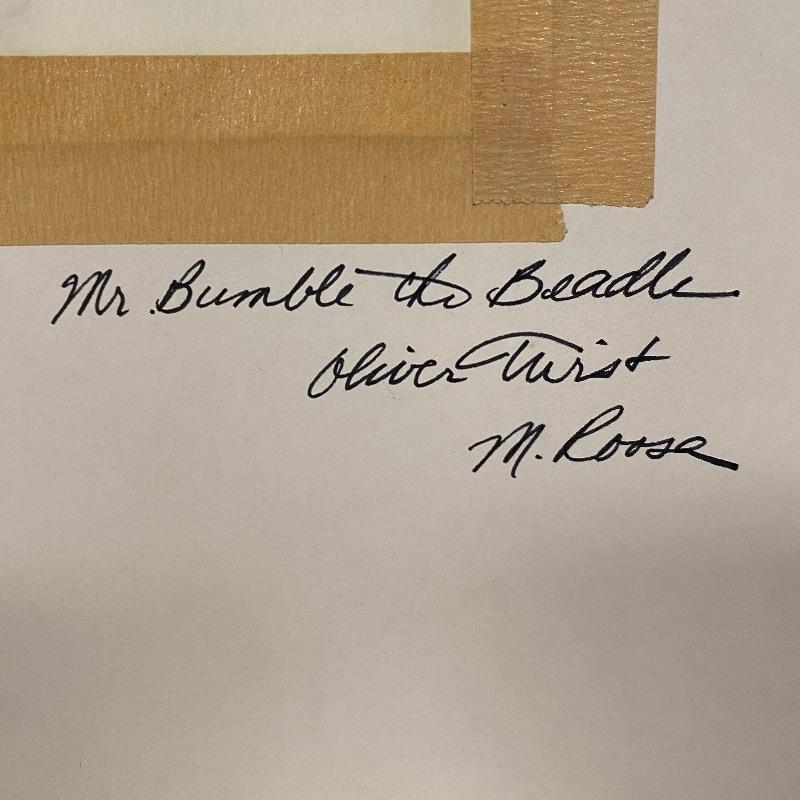 Mr. Bumble the Beadle
Oliver Twist
M. Roosa